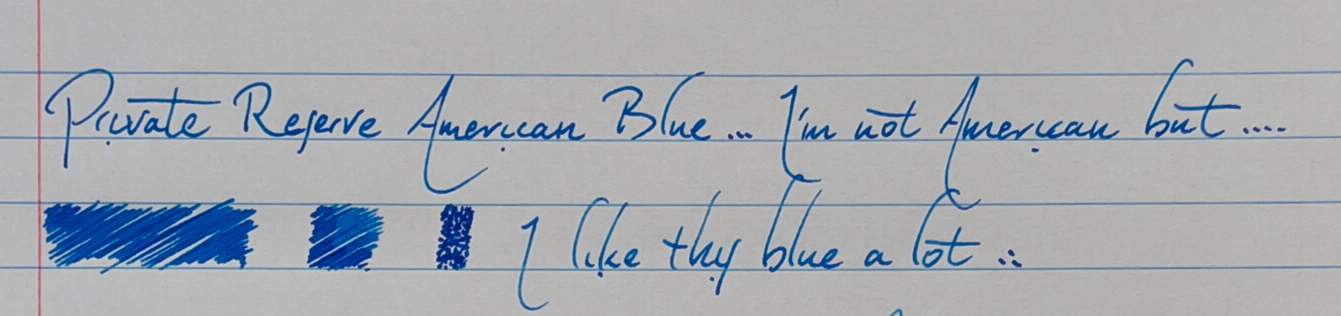 Private Reserve American Blue... I'm not American but....
I like thy blue a lot ..